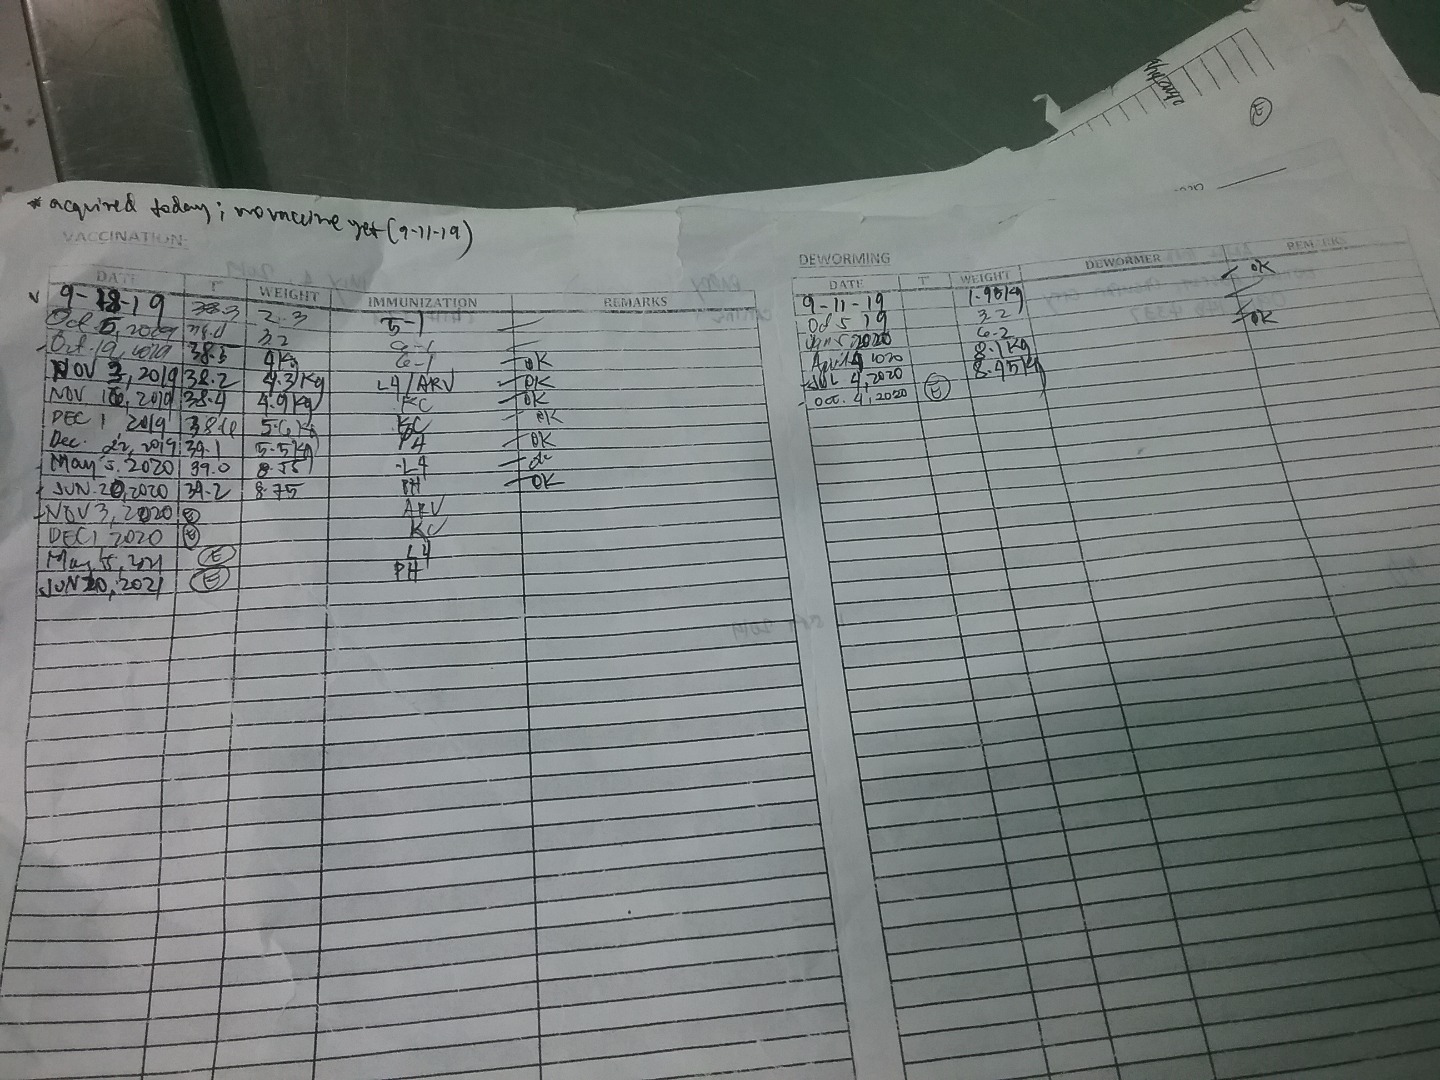 * acquired today; no vaccine yet (9-11-19)
VACCINATION
DATE T° WEIGHT IMMUNIZATION REMARKS
9-18-19 38.3 2.3 5-1
Oct 5, 2019 3.2 6-1
Oct 19, 2019 38.3 4Kg 6-1 OK
NOV 3, 2019 38.2 4.3Kg L4/ARV OK
NOV 16, 2019 38.4 4.9Kg KC OK
DEC 1 2019 38.6 5.6Kg KC OK
Dec. 22, 2019 39.1 5.5Kg PH OK
May 5, 2020 39.0 8.55 L4 OK
JUN. 20, 2020 39.2 8.75 PH OK
NOV 3, 2020 E ARV
DEC 1 2020 E KC
May 5, 2021 E L4
JUN 20, 2021 E PH
DEWORMING
DATE T° WEIGHT DEWORMER REMARKS
9-11-19 1.95Kg OK
Oct 5 19 3.2
Jan 5 2020 6.2 OK
April 4 2020 8.1Kg
JUL 4, 2020 8.45Kg
Oct. 4, 2020 E
E